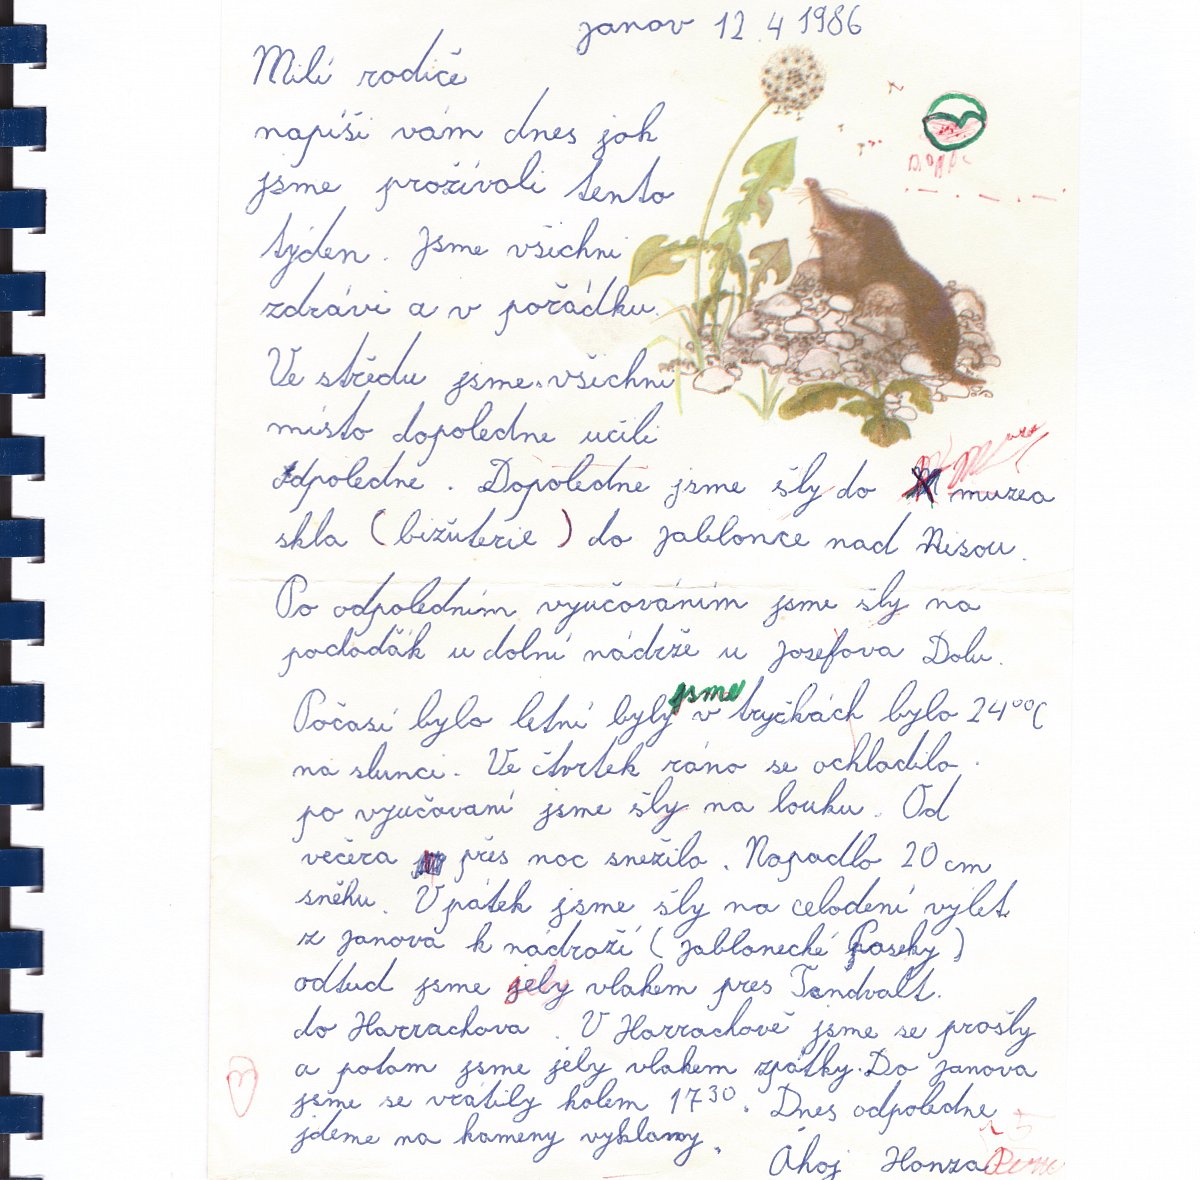 Janov 12.4 1986
Milí rodiče
napíši vám dnes jak
jsme prožívali tento
týden. Jsme všichni
zdrávi a v pořádku.
Ve středu jsme všichni
místo dopoledne učili
odpoledne. Dopoledne jsme šly do muzea
skla (bižuterie) do Jablonce nad Nisou.
Po odpoledním vyučováním jsme šly na
u dolní nádrže u Josefova Dolu.
jsme
Počasí bylo letní byly v tryčkách bylo 24°°C
na slunci. Ve čtvrtek ráno se ochladilo.
po vyučovaní jsme šly na louku. Od
večera přes noc snežilo. Napadlo 20 cm
sněhu. V pátek jsme šly na celodení výlet
z Janova k nádraží (Jablonecké Paseky)
odtud jsme jely vlakem pres Tandvalt.
do Harrachova. V Harrachově jsme se prošly
a potom jsme jely vlakem zpátky. Do Janova
jsme se vrátily kolem 17³⁰. Dnes odpoledne
jdeme na kameny
Ahoj Honza